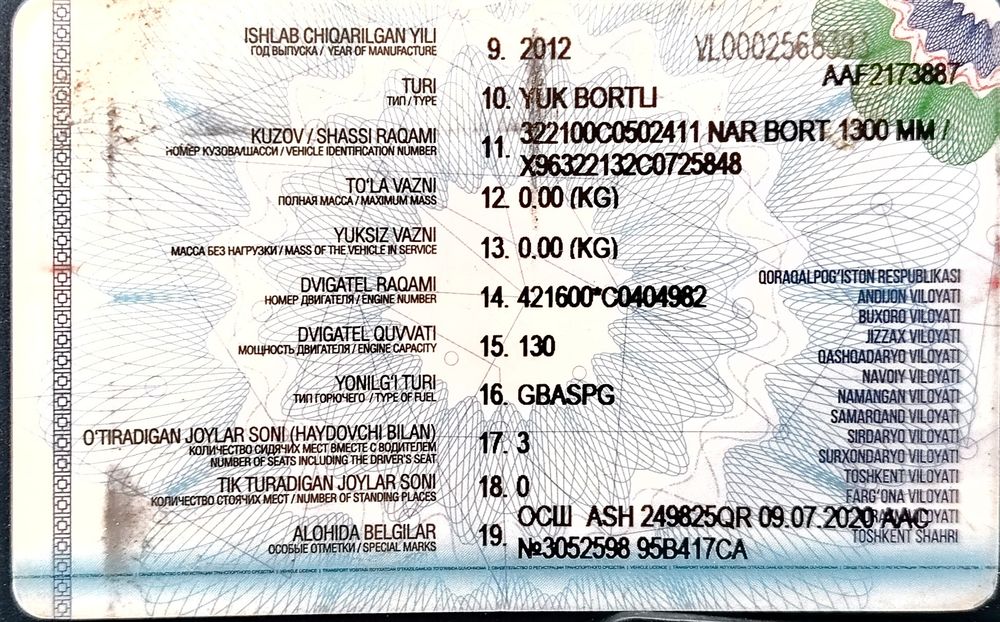 ISHLAB CHIQARILGAN YILI
ГОД ВЫПУСКА / YEAR OF MANUFACTURE
9. 2012
AAF2173887
TURI
ТИП / TYPE
10. YUK BORTLI
KUZOV / SHASSI RAQAMI
НОМЕР КУЗОВА/ШАССИ / VEHICLE IDENTIFICATION NUMBER
11. 322100C0502411 NAR BORT 1300 MM /
X96322132C0725848
TO'LA VAZNI
ПОЛНАЯ МАССА / MAXIMUM MASS
12. 0.00 (KG)
YUKSIZ VAZNI
МАССА БЕЗ НАГРУЗКИ / MASS OF THE VEHICLE IN SERVICE
13. 0.00 (KG)
DVIGATEL RAQAMI
НОМЕР ДВИГАТЕЛЯ / ENGINE NUMBER
14. 421600*C0404982
DVIGATEL QUVVATI
МОЩНОСТЬ ДВИГАТЕЛЯ / ENGINE CAPACITY
15. 130
YONILG'I TURI
ТИП ГОРЮЧЕГО / TYPE OF FUEL
16. GBASPG
O'TIRADIGAN JOYLAR SONI (HAYDOVCHI BILAN)
КОЛИЧЕСТВО СИДЯЧИХ МЕСТ ВМЕСТЕ С ВОДИТЕЛЕМ
NUMBER OF SEATS INCLUDING THE DRIVER'S SEAT
17. 3
TIK TURADIGAN JOYLAR SONI
КОЛИЧЕСТВО СТОЯЧИХ МЕСТ / NUMBER OF STANDING PLACES
18. 0
ALOHIDA BELGILAR
ОСОБЫЕ ОТМЕТКИ / SPECIAL MARKS
19. ОСШ ASH 249825QR 09.07.2020 AAC
№3052598 95B417CA
QORAQALPOG'ISTON RESPUBLIKASI
ANDIJON VILOYATI
BUXORO VILOYATI
JIZZAX VILOYATI
QASHQADARYO VILOYATI
NAVOIY VILOYATI
NAMANGAN VILOYATI
SAMARQAND VILOYATI
SIRDARYO VILOYATI
SURXONDARYO VILOYATI
TOSHKENT VILOYATI
FARG'ONA VILOYATI
TOSHKENT SHAHRI